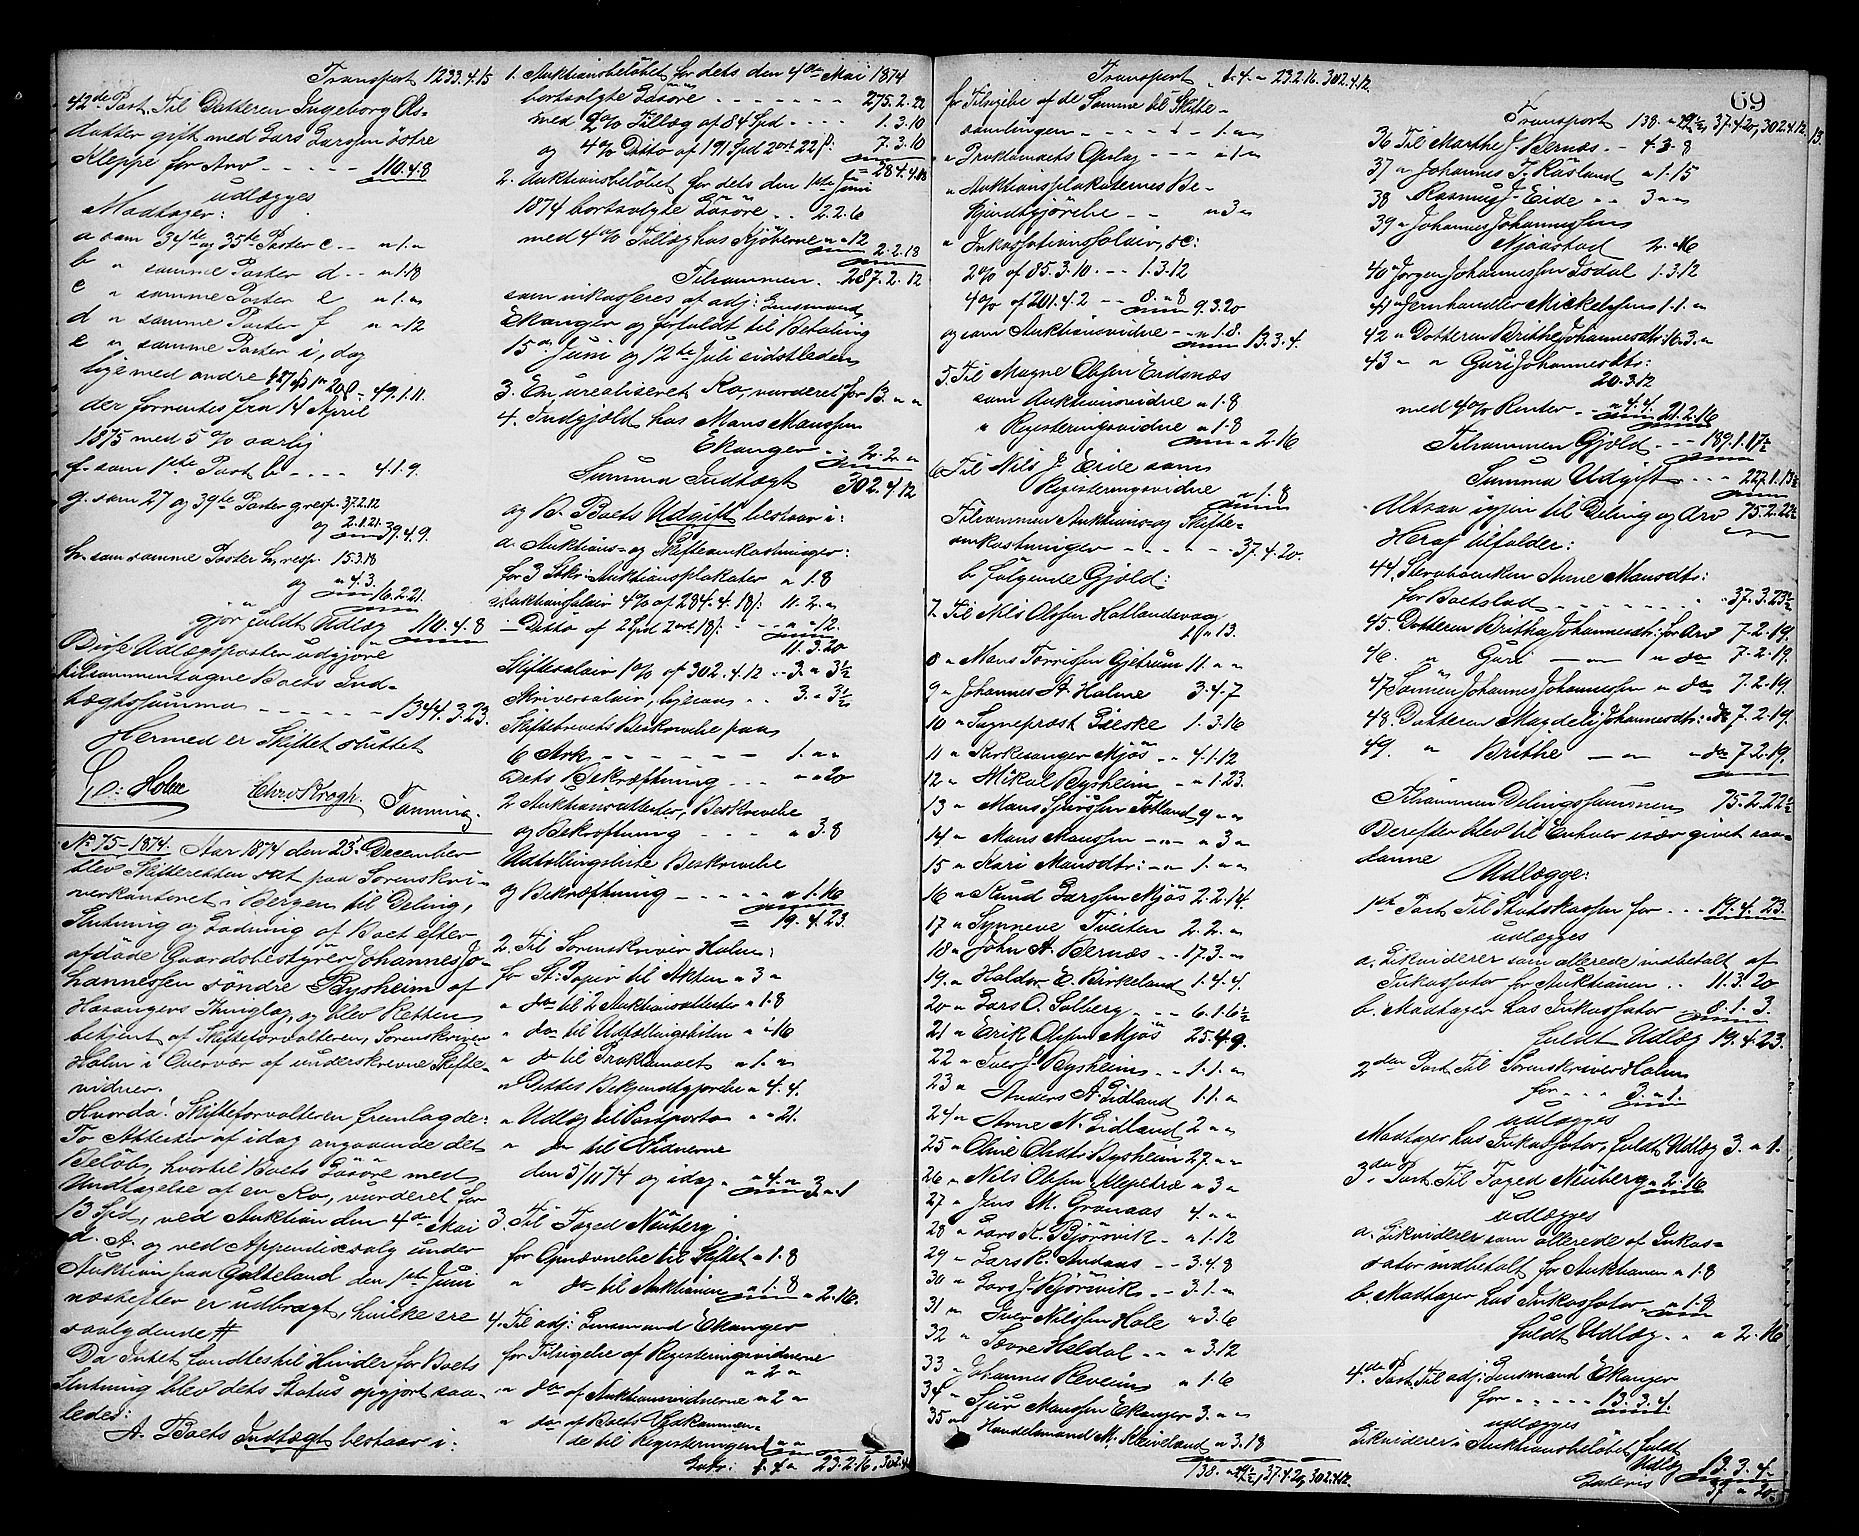 Transport 1233.4.15
42de Post. Til Datteren Ingeborg Ols-
datter gift med Lars Larssen östre
Kleppe for Arv - - - - 110.4.8
udlægges
Modtager:
a som 34te og 35te Poster c. - - " 1. "
b " samme Poster d - - " 1.18
c " samme Poster e " 1. "
d " samme Poster f " " 12
e " samme Poster i, dog
lige med andre 49.1.11.
der forrentes fra 14 April
1875 med 5 % aarlig
f. som 1ste Post b - - - - 4.1.9.
g. som 27 og 39te Poster g resp. 37.2.12
og 2.1.21. 39.4.9.
h. som samme Poster h, resp. 15.3.18
og " 4.3. 16.2.21.
gjör fuldt Udlæg 110.4.8
Disse Udlægsposter udgjöre
tilsammentagne Boets Ind-
tægtssumma - - - - - 1344.3.23.
Hermed er Skiftet sluttet
Holm Chr. Krogh. Tanning.
No 75-1874. Aar 1874 den 23de December
blev Skifteretten sat paa Sorenskri-
verkontoret i Bergen til Deling,
Slutning og Lodning af Boet efter
afdöde Gaardsbestyrer Johannes Jo-
hannessen söndre Bysheim af
Hosangers Thinglag, og blev Retten
betjent af Skifteforvalteren, Sorenskriver
Holm i Overvær af underskrevne Skifte-
vidner.
Hvorda: Skifteforvalteren fremlagde:
To Attester af idag angaaende det
Belöb, hvortil Boets Lösöre med
Undtagelse af en Ko, vurderet for
13 Spd, ved Auktion den 4de Mai
d. A. og ved Appendixsalg under
Auktion paa Gulteland den 1ste Juni
næstefter er udbragt, hvilke ere
saalydende #
Da Intet fandtes til Hinder for Boets
Slutning blev dets Status opgjort saa-
ledes:
A. Boets Indtægt bestaar i:
1. Auktionsbelöbet for dets den 4de Mai 1874
bortsolgte Lösöre - - - - - - - 275.2.22
med 2% Tillæg af 84 Spd - - - - 1.3.10
og 4% Ditto af 191 Spd 2 ort 22 s: 7.3.10
284.4.18
2. Auktionsbelöbet for dets den 1ste Juni
1874 bortsolgte Lösöre - - 2.2.6
med 4% Tillæg hos Kjöberne " " 12 2.2.18
Tilsammen. 287.2.12
som inkasseres af adj: Lensmand
Ekanger og forfaldt til Betaling
15de Juni og 12te Juli sidstleden
3. En urealiseret Ko, vurderet for 13. " "
4. Indgjæld hos Mons Monssen
Ekanger - - 2.2. "
Summa Indtægt 302.4.12
og B. Boets Udgift bestaar i:
a. Auktions- og Skifteomkostninger:
for 3 Stkr: Auktionsplakater " 1.8
Auktionssalair 4% af 284.4.18 s: 11.2. "
- Ditto af 2 Spd 2 ort 18 s: " " 12.
11.3.20
Skiftesalair 1% af 302.4.12 - - 3. " 3½
Skriversalair, ligesaa - - 3. " 3½
Skiftebrevets Beskrivelse paa
6 Ark - - - - - - - 1. " "
Dets Bekræftning - - - " " 20
2 Auktionsattester, Beskrivelse
og Bekræftning - - - - " 3.8
Udtællingsliste Beskrivelse
og Bekræftning - - - - " 1.16
19.4.23.
2. Til Sorenskriver Holm:
for St: Papir til Akten " 3 "
" do til 2 Auktionsattester " 1.8
" do til Udtællingslisten " " 16
" do til Proklamaet " 1. "
" Dettes Bekjendtgjörelse " 4.4.
" Udlæg til Postporto " " 21.
" do til Vidnerne
den 5/11 74 og idag " " 4. " 3. " 1
3. Til Foged Neuberg
for Opnævnelse til Skiftet " 1.8
" do til Auktionen " 1.8 " 2.16.
4. Til adj: Lensmand Ekanger
for Tilsigelse af Registreringsvidnerne
" 2 "
" do af Auktionsvidnerne " 2 "
" do af Boets Vedkommen-
de til Registreringen
Latr: 1.4. " 23.2.16, 302.4.12
Transport 1.4. " 23.2.16. 302.4.12.
for Tilsigelse af de Samme til Skifte-
samlingen - - - - - - 1. " "
" Proklamaets Opslag - - - " 1 "
" Auktionsplakaternes Be-
kjendtgjörelse - - " 3 "
" Inkassationssalair, sc:
2% af 85.3.10. - - 1.3.12
4% af 201.4.2 - - 8. " 8 9.3.20
og som Auktionsvidne - - " 1.8. 13.3.4.
5. Til Magne Olsen Eidsnæs
som Auktionsvidne " 1.8
" Registreringsvidne " 1.8 " 2.16
6. Til Nils J. Eide som
Registreringsvidne " 1.8
Tilsammen Auktions- og Skifte-
omkostninger - - - - - - 37.4.20.
b. fölgende Gjæld:
7. Til Nils Olsen Hatlandsvaag
13.
8 " Mons Torrissen Gjetrum 11. " "
9 " Johannes A. Holme 3.4.7
10 " Sognepræst Giæske 1.3.16
11 " Kirkesanger Mjös - - 4.1.12
12 " Mikal Bysheim - - " 1.23.
13 " Mons Sjursen Totland 9 " "
14 " Mons Monssen - " - " 3 "
15 " Kari Monsdtr: - " - 1. " "
16 " Knud Larssen Mjös 2.2.14.
17 " Synneve Tveiten 2.2. "
18 " John A. Bernæs - - 17.3. "
19. " Haldor E. Birkeland 1.4.4.
20 " Lars O. Solberg - - - 6.1.6½
21 " Erik Olsen Mjös 25.4.9.
22 " Iver J. Bysheim - - 1.1. "
23 " Anders A. Eidland 1.1. "
24 " Anne N. Eidland 2 " "
25 " Oline Olsdtr Bysheim 27. " "
26 " Nils Olsen Mepetræ " 3 "
27 " Jens M. Gronaas 4. " "
28 " Lars K. Björsvik - " 1.12
29 " Lars R. Andaas - - 3.4.8
30 " Lars J. Kjörsvik - - 3.1. "
31 " Iver Nilssen Hole " 3.6
32 " Sovre Heldal - - " 3.12
33 " Johannes Revheim " 1.6
34 " Sjur Monssen Ekanger 3. " "
35 " Handelsmand M. Kleiveland " 3.18
138. 37.4.20, 302.4.12.
69
Transport 138. 37.4.20, 302.4.12.
36 Til Marthe J. Bernæs - - 4.3.8
37 " Johannes I. Røsland " 1.15
38 Rasmus J. Eide - - 3 " "
39 " Johannes Johannessen
Mjaastad 2. " 16
40 " Jørgen Johannessen Isdal 1.3.12
41 " Jernhandler Mickelsen 1.1. "
42 " Datteren Brithe Johannesdtr 16.3. "
43 " " Guri Johannesdtr:
20.3.12
med 4% Renter - - " 4.4. 21.2.16
Tilsammen Gjæld - - - 189.1.17½
Summa Udgift - - - 227.1.13½
Altsaa igjen til Deling og Arv 75.2.22½
Heraf tilfalder:
44. Sterboenken Anne Monsdtr:
for Boeslod - - - - - - - 37.3.23½
45. Datteren Britha Johannesdtr: for Arv 7.2.19.
46. " Guri - " - " do 7.2.19.
47 Sönnen Johannes Johannessen " do 7.2.19.
48. Datteren Magdeli Johannesdtr: " do 7.2.19.
49. " Brithe - " - " do 7.2.19.
Tilsammen Delingssummen 75.2.22½
Derefter blev til Enhver især givet saa-
danne
Udlægge:
1ste Post Til Statskassen for - - - 19.4.23.
udlægges
a. Likviderer som allerede indbetalt af
Inkassator for Auktionen - - 11.3.20
b. Modtager hos Inkassator 8.1.3.
fuldt Udlæg 19.4.23.
2den Post Til Sorenskriver Holm
for - - - 3. " 1.
udlægges
Modtager hos Inkassator, fuldt Udlæg 3. " 1.
3die Post. Til Foged Neuberg " 2.16
udlægges
a. Likviderer som allerede af Inkas-
sator indbetalt for Auktionen " 1.8
b. Modtager hos Inkassator " 1.8
fuldt Udlæg - - " 2.16
4de Post. Til adj: Lensmand Ekanger
for - - - - - 13.3.4.
udlægges
Likviderer i Auktionsbelöbet fuldt
Udlæg 13.3.4.
Lateris 37 " 20.